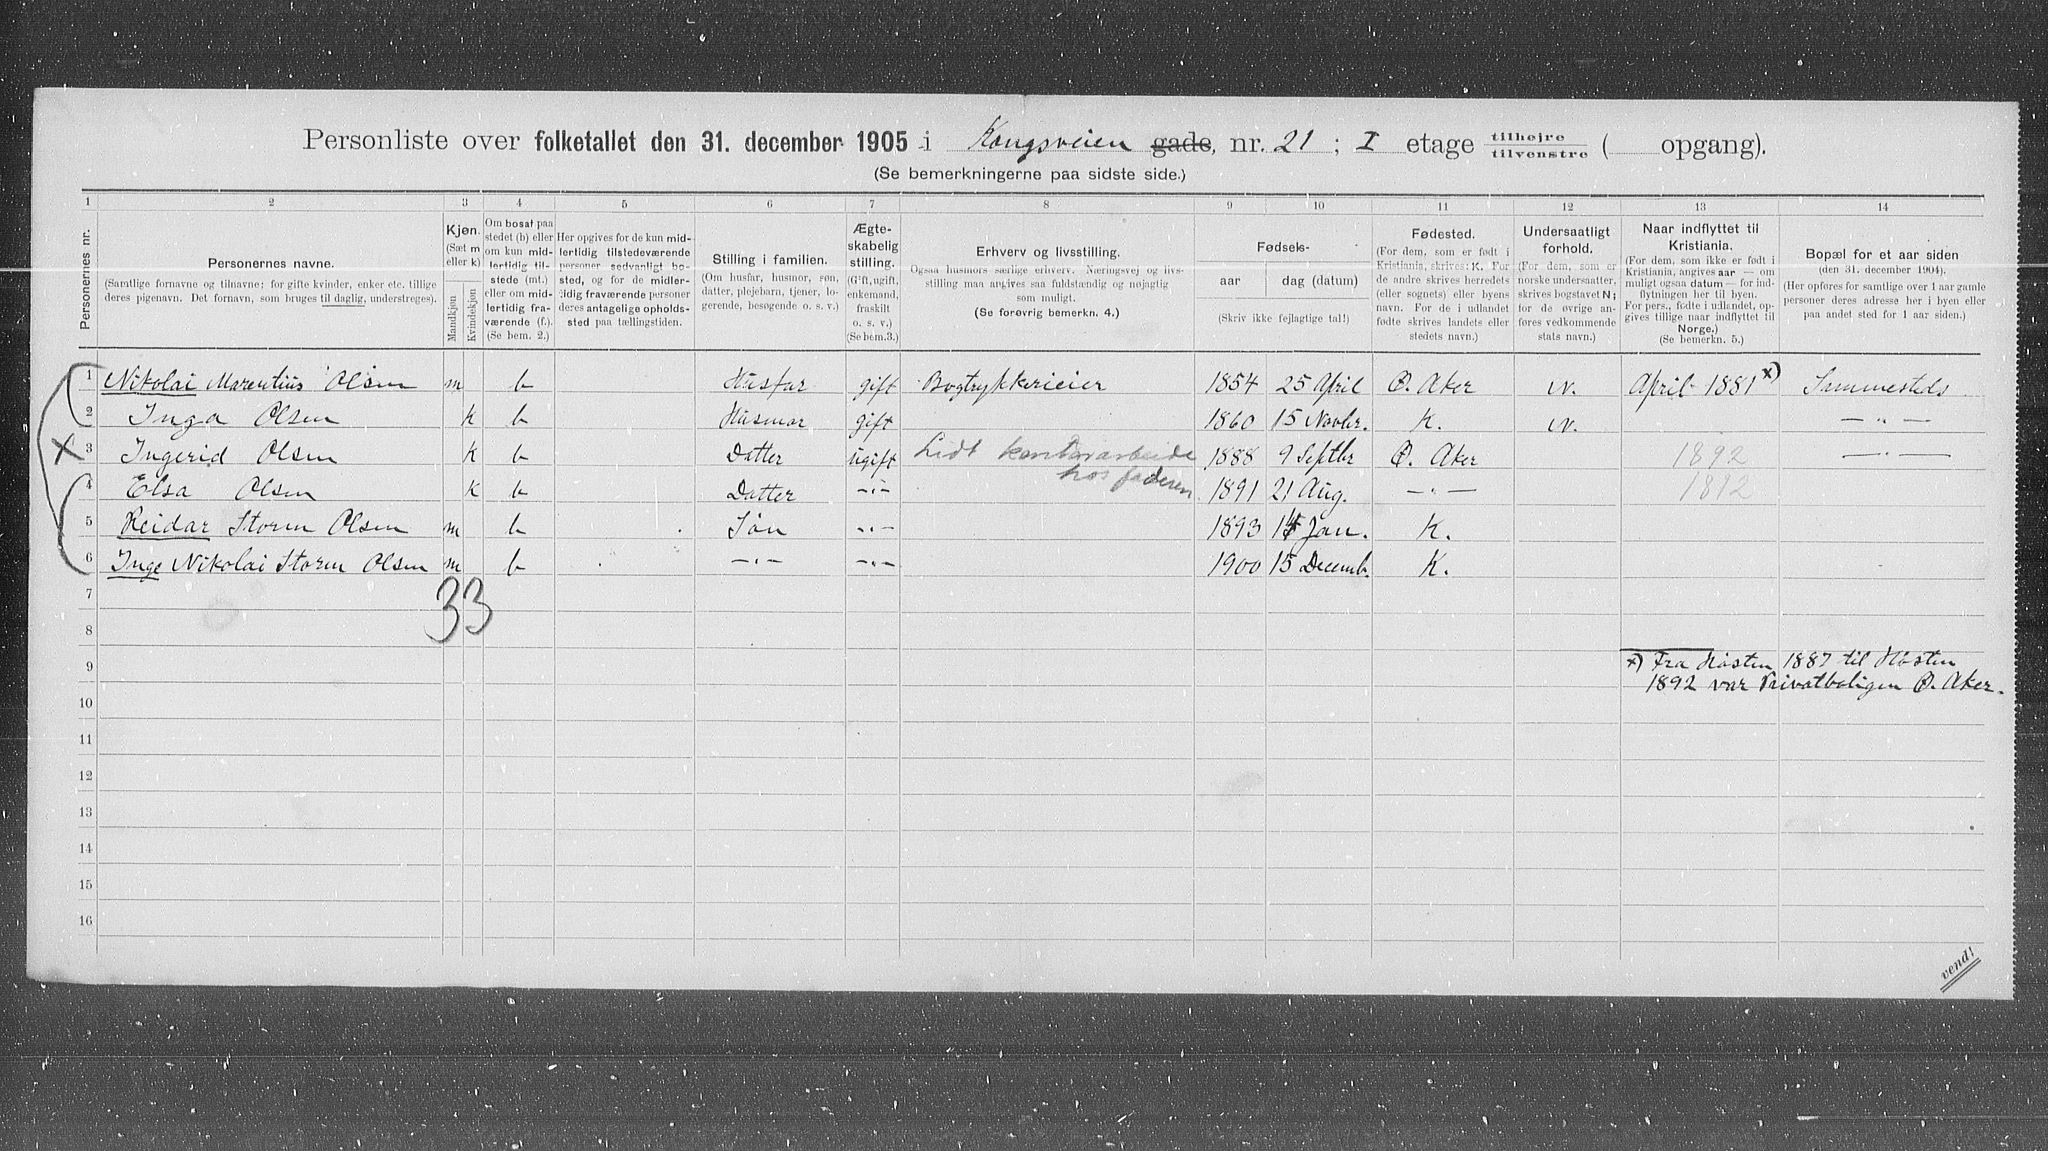 Personliste over folketallet den 31. december 1905 i Kongsveien gade, nr. 21 ; I etage tilhøjre / tilvenstre ( opgang).
(Se bemerkningerne paa sidste side.)
1 2 3 4 5 6 7 8 9 10 11 12 13 14
Personernes nr.
Personernes navne.
(Samtlige fornavne og tilnavne; for gifte kvinder, enker etc. tillige
deres pigenavn. Det fornavn, som bruges til daglig, understreges).
Kjøn.
(Sæt m
eller k)
Mandkjøn
Kvindekjøn
Om bosat paa
stedet (b) eller
om kun mid-
lertidig til-
stede (mt.)
eller om mid-
lertidig fra-
værende (f.).
(Se bem. 2.)
Her opgives for de kun mid-
lertidig tilstedeværende
personer sedvanligt bo-
sted, og for de midler-
tidig fraværende personer
deres antagelige opholds-
sted paa tællingstiden.
Stilling i familien.
(Om husfar, husmor, søn,
datter, plejebarn, tjener, lo-
gerende, besøgende o. s. v.)
Ægte-
skabelig
stilling.
(Gift, ugift,
enkemand,
fraskilt
o. s. v.)
(Se bem.3.)
Erhverv og livsstilling.
Ogsaa husmors særlige erhverv. Næringsvej og livs-
stilling maa angives saa fuldstændig og nøjagtig
som muligt.
(Se forøvrig bemerkn. 4.)
Fødsels-
aar dag (datum)
(Skriv ikke fejlagtige tal!)
Fødested.
(For dem, som er født i
Kristiania, skrives: K. For
de andre skrives herredets
(eller sognets) eller byens
navn. For de i udlandet
fødte skrives landets eller
stedets navn.)
Undersaatligt
forhold.
(For dem, som er
norske undersaatter,
skrives bogstavet N;
for de øvrige an-
føres vedkommende
stats navn.)
Naar indflyttet til
Kristiania.
(For dem, som ikke er født i
Kristiania, angives aar — om
muligt ogsaa datum — for ind-
flytningen her til byen.
For pers., fødte i udlandet, op-
gives tillige naar indflyttet til
Norge.)
(Se bemerkn. 5.)
Bopæl for et aar siden
(den 31. december 1904).
(Her opføres for samtlige over 1 aar gamle
personer deres adresse her i byen eller
paa andet sted for 1 aar siden.)
1 Nikolai Marentius Olsen m b Husfar gift Bogtrykkerieier 1854 25 April Ø. Aker N. April 1881 x) Sammesteds
2 Inga Olsen k b Husmor gift 1860 15 Novbr. K. N. — " —
x 3 Ingerid Olsen k b Datter ugift Lidt kontorarbeide 1888 9 Septbr Ø. Aker 1892 — " —
hos faderen
4 Elsa Olsen k b Datter - " - 1891 21 Aug. — " — 1892
5 Reidar Storm Olsen m b Søn - " - 1893 14 Jan. K.
6 Inge Nikolai Storm Olsen m b - " - - " - 1900 15 Decemb. K.
7
33
8
9 x) Fra Høsten 1887 til Høsten
10 1892 var Privatboligen Ø. Aker.
11
12
13
14
15
16
vend!